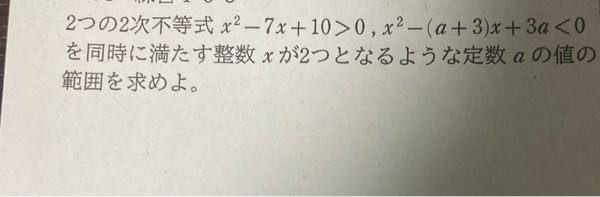 2つの2次不等式 x²−7x+10>0, x²−(a+3)x+3a<0
を同時に満たす整数 x が2つとなるような定数 a の値の
範囲を求めよ。